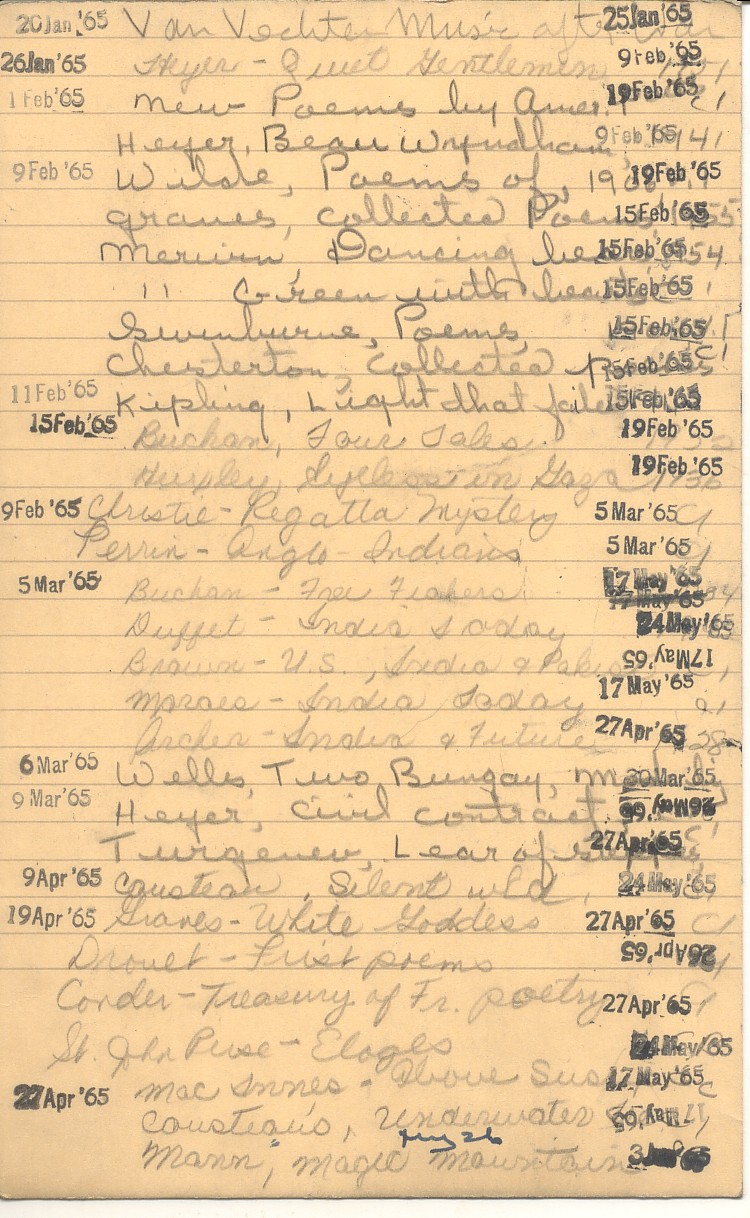 20 Jan '65 Van Vechten Music after 25 Jan '65
26 Jan '65 Heyer - Quiet Gentlemen 9 Feb '65
1 Feb '65 New Poems by Amer. 19 Feb '65 C1
Heyer, Beau Wyndham, 9 Feb '65 1941
9 Feb '65 Wilde, Poems of, 19 Feb '65
Graves, Collected Poems 15 Feb '65 55
Merwin, Dancing bears 15 Feb '65 54
" Green with beasts 15 Feb '65
Swinburne, Poems, 15 Feb '65
Chesterton, Collected Poems 15 Feb '65 C1
11 Feb '65 Kipling, Light that failed 15 Feb '65
15 Feb '65 Buchan, Four Tales 19 Feb '65
Huxley, Eyeless in Gaza 1936 19 Feb '65
9 Feb '65 Christie - Regatta Mystery 5 Mar '65 C1
Perrin - Anglo-Indians 5 Mar '65
5 Mar '65 Buchan - Free Fishers 17 May '65 34
17 May '65
Duffet - India Today 24 May '65
Brown - U.S., India & Pakis 17 May '65
Moraes - India Today 17 May '65
Archer - India & Future 27 Apr '65 28
6 Mar '65 Wells, Two Bungay, 30 Mar '65
9 Mar '65 Heyer, Civil contract, 26 May '65
Turgenev, Lear of steppes 27 Apr '65
9 Apr '65 Cousteau, Silent wld, 24 May '65
19 Apr '65 Graves - White Goddess 27 Apr '65 C1
Drouet - First poems 26 Apr '65
Conder - Treasury of Fr. poetry 27 Apr '65 C1
St. John Perse - Eloges 24 May '65
Mac Innes - Above Sus 17 May '65
27 Apr '65 Cousteau's, Underwater 17 May '65
Mann, Magic Mountain 3 '65